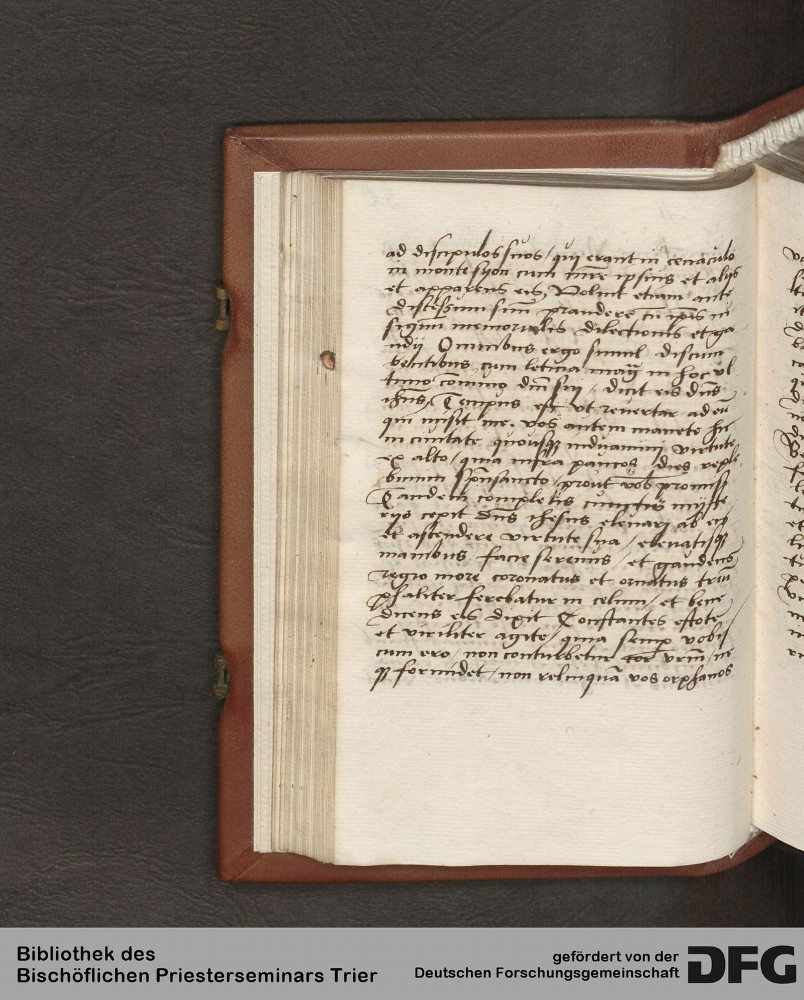 ad discipulos suos / qui erant in cenaculo
in monte syon cum mr̄e ipsius et alijs
et apparens eis, Voluit etiam ante
discessum suum prandere cū ip̄is in
signū memorialis dilectionis et ga
udij Omnibus ergo simul discum
bentibus cum leticia magͣ in hoc vl
timo conuiuio dn̄i sui / dicit eis dn̄s
ih̄us / Tempus est vt reuertar ad eū
qui misit me. vos autem manete hic
in ciuitate quousqꝫ induamini virtute
ex alto / quia infra paucos dies reple
bimini sp̄usancto / prout vob̄ promisi
Tandem completis cunctis myste
rijs cepit dn̄s ihesus eleuari ab eis
et ascendere virtute sua / eleuatisqꝫ
manibus / facie serenus / et gaudens
regio more coronatus et ornatus triū
phaliter ferebatur in celum / et bene
dicens eis dixit Constantes estote
et viriliter agite / quia semp̄ vobis
cum ero / non conturbetur cor vr̄m / ne
qꝫ formidet / non relinquā vos orphanos
Bibliothek des
Bischöflichen Priesterseminars Trier
gefördert von der
Deutschen Forschungsgemeinschaft
DFG